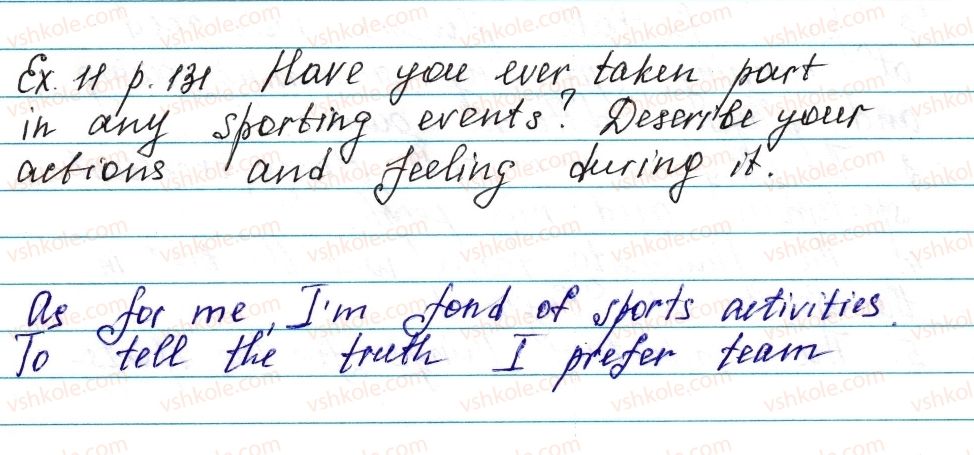 Ex. 11 p. 131 Have you ever taken part
in any sporting events? Describe your
actions and feeling during it.
As for me, I'm fond of sports activities.
To tell the truth I prefer team